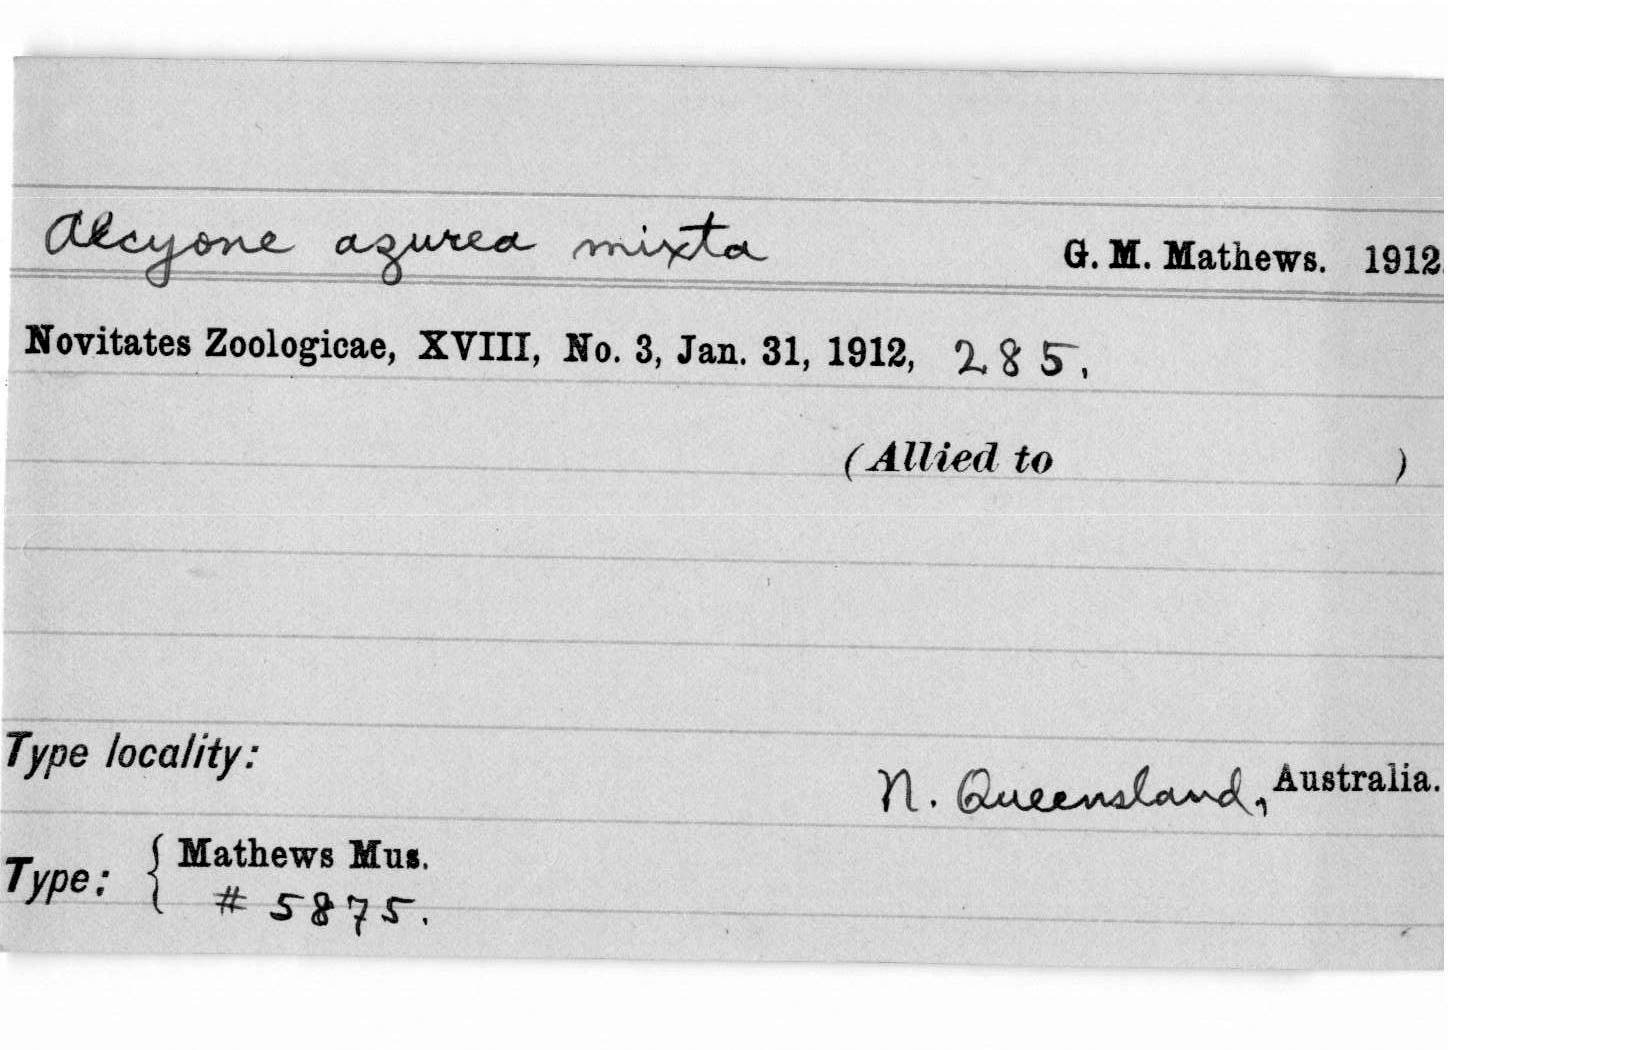 Alcyone azurea mixta G. M. Mathews. 1912.
Novitates Zoologicae, XVIII, No. 3, Jan. 31, 1912, 285.
(Allied to )
Type locality:
N. Queensland, Australia.
Type: { Mathews Mus.
# 5875.